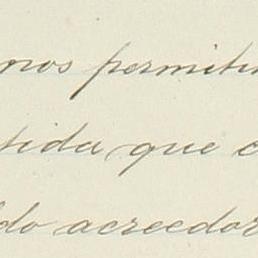 nos permitir
tida que c
do acreedor